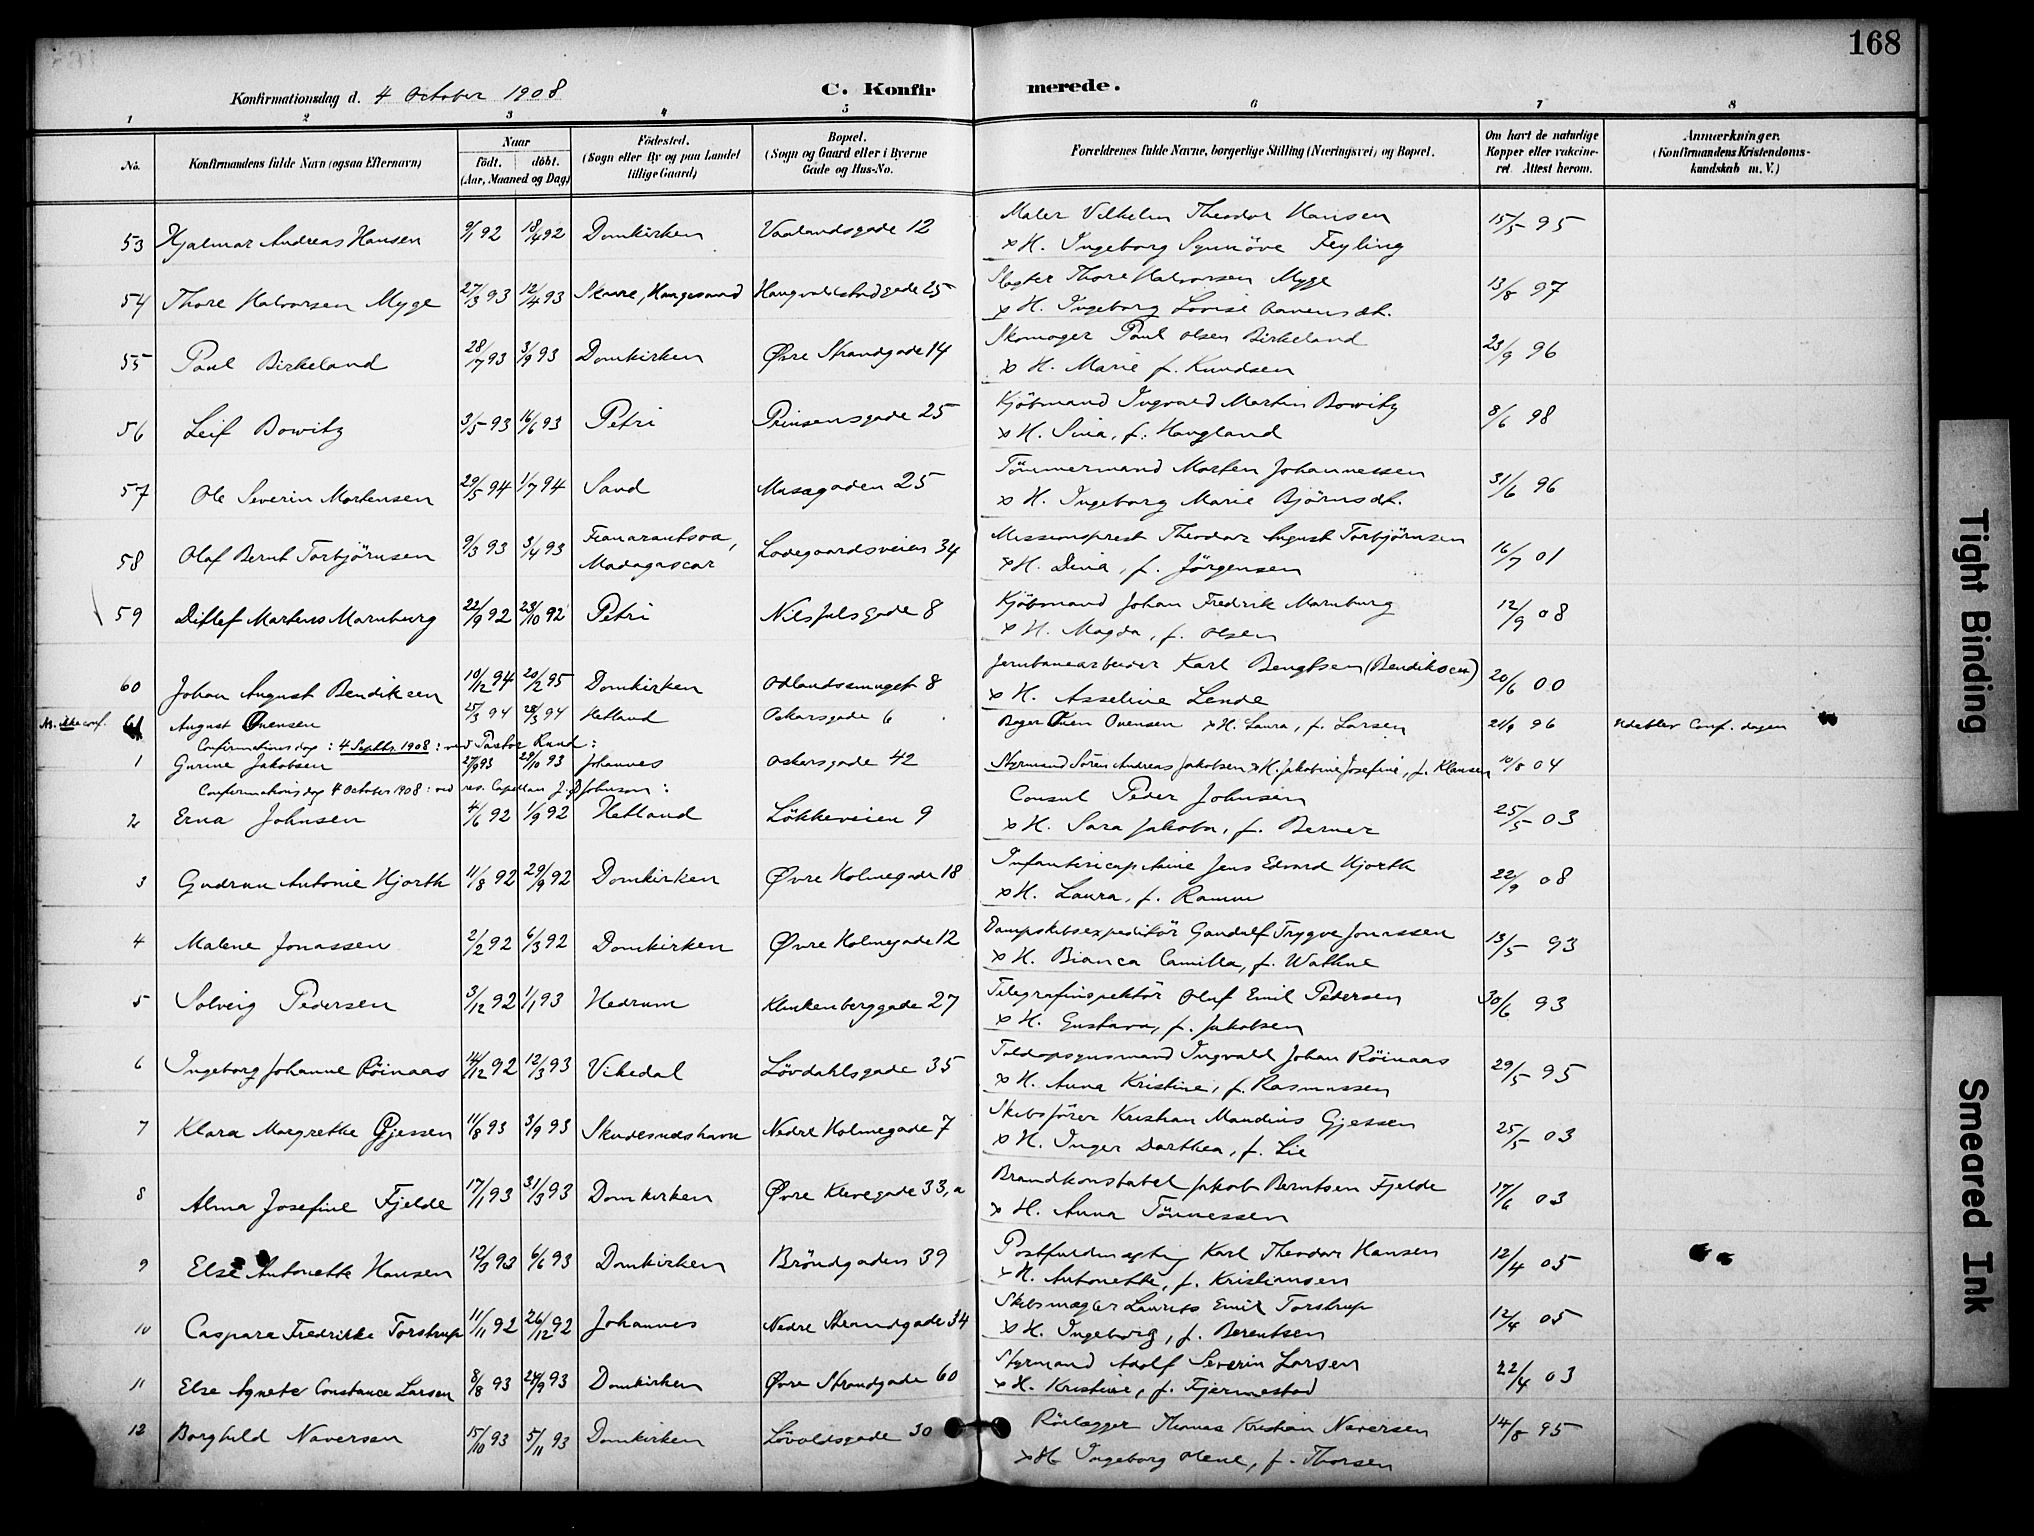 168
Konfirmationsdag d. 4 October 1908 C. Konfirmerede.
1 2 3 4 5 6 7 8
No. Konfirmandens fulde Navn (ogsaa Efternavn) Naar födt. döbt. (Aar, Maaned og Dag) Födested. (Sogn eller By og paa Landet tillige Gaard) Bopæl. (Sogn og Gaard eller i Byerne Gade og Hus-No. Forældrenes fulde Navne, borgerlige Stilling (Næringsvei) og Bopæl. Om havt de naturlige Kopper eller vakcineret. Attest herom. Anmærkninger. (Konfirmandens Kristendomskundskab m. V.)
53 Hjalmar Andreas Hansen 9/1 92 18/4 92 Domkirken Vaalandsgade 12 Maler Vilhelm Theodor Hansen 15/5 95
x H. Ingeborg Synnöve Feyling
54 Thore Halvorsen Myge 27/3 93 12/4 93 Skaare, Haugesund 25 Thore Halvorsen Myge 13/8 97
x H. Ingeborg Lovise
55 Paul Birkeland 28/7 93 3/9 93 Domkirken Øvre Strandgade 14 Skomager Paul Olsen Birkeland 23/9 96
x H. Marie f. Knudsen
56 Leif Bowitz 3/5 93 16/6 93 Petri Prinsensgade 25 Kjöbmand Ingvald Martin Bowitz 8/6 98
x H. Sina, f. Haugland
57 Ole Severin Mortensen 29/5 94 1/7 94 Sand Musegaden 25 Tömmermand Morten Johannessen 31/6 96
x H. Ingeborg Marie Björnsdt.
58 Olaf Bernt Torbjörnsen 9/3 93 3/4 93 Fianarantsoa, Ladegaardsveien 34 Missionsprest Theodor August Torbjörnsen 16/7 01
Madagascar x H. Dina, f. Jörgensen
59 Ditlef Martens Marnburg 22/9 92 23/10 92 Petri Nils Juls gade 8 Kjöbmand Johan Fredrik Marnburg 12/9 08
x H. Magda, f. Olsen
60 Johan August Bendiksen 10/12 94 20/2 95 Domkirken Odlandssmuget 8 Jernbanearbeider Karl Bengtsen (Bendiksen) 20/6 00
x H. Asseline Lende
ikke conf. 61 August Ovensen 25/3 94 28/3 94 Hetland Oskarsgade 6 Bager Oven Ovensen x H. Laura, f. Larsen 21/9 96 Udeblev Conf. dagen
Confirmationsdag : 4 Septbr. 1908 : ved Pastor Ruud :
1 Gurine Jakobsen 27/9 93 29/10 93 Johannes Oskarsgade 42 Styrmand Sören Andreas Jakobsen x H. Jakobine Josefine, f. Klausen 10/8 04
Confirmationsdag 4 October 1908 : ved res. Capellan J. Ø Johnson :
2 Erna Johnsen 4/6 92 1/9 92 Hetland Lökkeveien 9 Consul Peder Johnsen 25/5 03
x H. Sara Jakoba, f. Berner
3 Gudrun Antonie Hjorth 11/8 92 29/9 92 Domkirken Øvre Holmegade 18 Infantericaptaine Jens Edvard Hjorth 22/9 08
x H. Laura, f. Ramm
4 Malene Jonassen 2/2 92 6/3 92 Domkirken Øvre Holmegade 12 Dampskibsexpeditör Gandulf Trygve Jonassen 13/5 93
x H. Bianca Camilla, f. Wathne
5 Solveig Pedersen 3/12 92 1/1 93 Hedrum Klinkenberggade 27 Telegrafinspektör Olaf Emil Pedersen 30/6 93
x H. Gustava, f. Jakobsen
6 Ingeborg Johanne Röinaas 14/12 92 12/3 93 Vikedal Lövdahlsgade 35 Toldopsynsmand Ingvald Johan Röinaas 29/5 95
x H. Anna Kristine, f. Rasmussen
7 Klara Margrethe Gjessen 11/8 93 3/9 93 Skudesneshavn Nedre Holmegade 7 Skibsförer Kristian Mandius Gjessen 25/5 03
x H. Inger Dorthea, f. Lie
8 Alma Josefine Fjelde 17/1 93 31/3 93 Domkirken Øvre Klevegade 33,a Brandkonstabel Jakob Berntsen Fjelde 17/6 03
x H. Anna Tönnessen
9 Else Antonette Hansen 12/3 93 6/6 93 Domkirken Bröndgaden 39 Postfuldmægtig Karl Theodor Hansen 12/4 05
x H. Antonette, f. Kristiansen
10 Caspara Fredrikke Torstrup 11/11 92 26/12 92 Johannes Nedre Strandgade 34 Skibsmægler Laurits Emil Torstrup 12/4 05
x H. Ingeborg, f. Berentsen
11 Else Agnete Constance Larsen 8/8 93 24/9 93 Domkirken Øvre Strandgade 60 Styrmand Adolf Severin Larsen 22/4 03
x H. Kristine, f. Fjermestad
12 Borghild Naversen 15/10 93 5/11 93 Domkirken Lövoldsgade 30 Rörlægger Thomas Kristian Naversen 14/8 95
x H Ingeborg Olene, f. Thorsen
Tight Binding
Smeared Ink